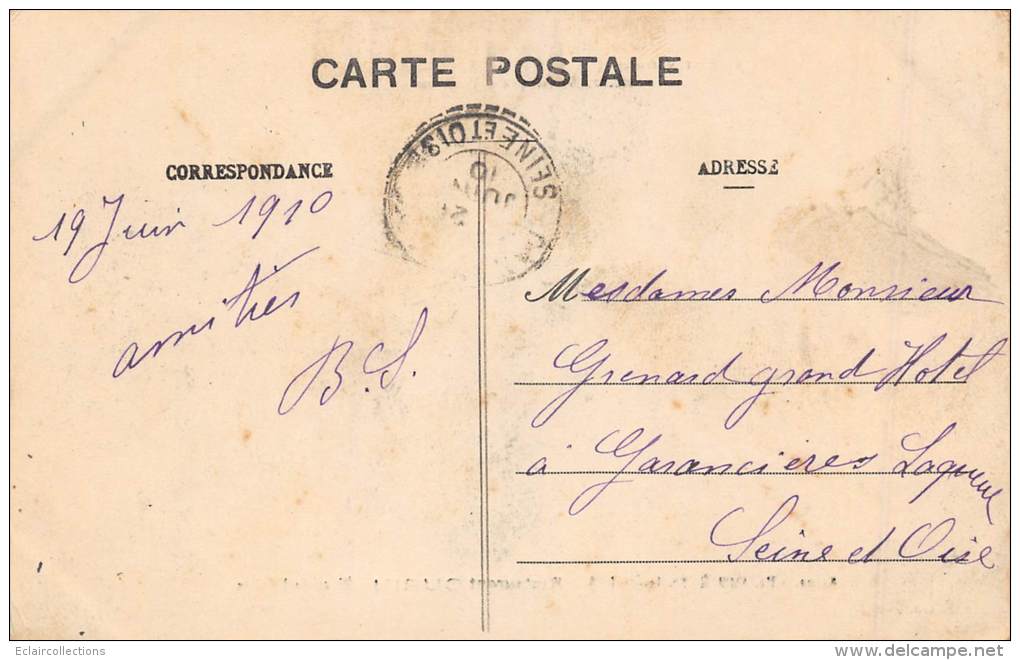 CARTE POSTALE
CORRESPONDANCE
19 Juin 1910
amitiés
B. S.
SEINE ET OISE
JUIN
10
ADRESSE
Mesdames Monsieur
Grenard grand Hotel
à Garancières Laqueue
Seine et Oise
Eclaircollections
www.delcampe.net